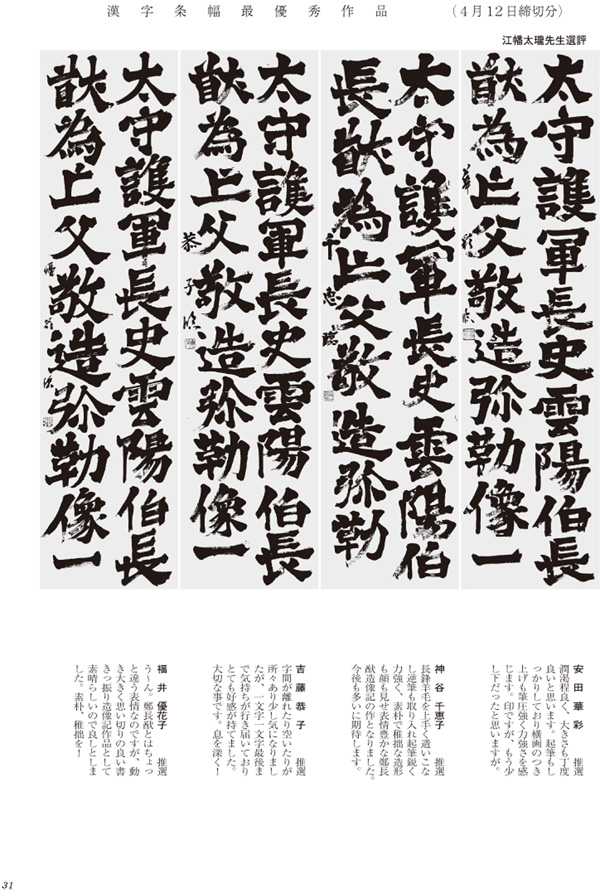 漢字条幅最優秀作品　（４月１２日締切分）
江幡太瓏先生選評
太守護軍長史雲陽伯長
猷為亡父敬造弥勒像一
華彩
太守護軍長史雲陽伯
長猷為亡父敬造弥勒
千恵
太守護軍長史雲陽伯長
猷為亡父敬造弥勒像一
恭子臨
太守護軍長史雲陽伯長
猷為亡父敬造弥勒像一
安田華彩　推選
潤渇程良く、大きさも丁度
良いと思います。起筆もし
っかりしており横画のつき
上げも筆圧強く力強さを感
じます。印ですが、もう少
し下だったと思いますが。
神谷千恵子　推選
長鋒羊毛を上手く遣いこな
し逆筆も取り入れ起筆鋭く
力強く、素朴で稚拙な造形
も顔も見せ表情豊かな鄭長
猷造像記の作となりました。
今後も多いに期待します。
吉藤恭子　推選
字間が離れたり空いたりが
所々あり少し気になりまし
たが、一文字一文字最後ま
で気持ちが行き届いており
とても好感が持てました。
大切な事です。息を深く！
福井優花子　推選
う～ん。鄭長猷とはちょっ
と違う表情なのですが、動
き大きく思い切りの良い書
きっ振り造像記作品として
素晴らしいので良しとしま
した。素朴、稚拙を！
31